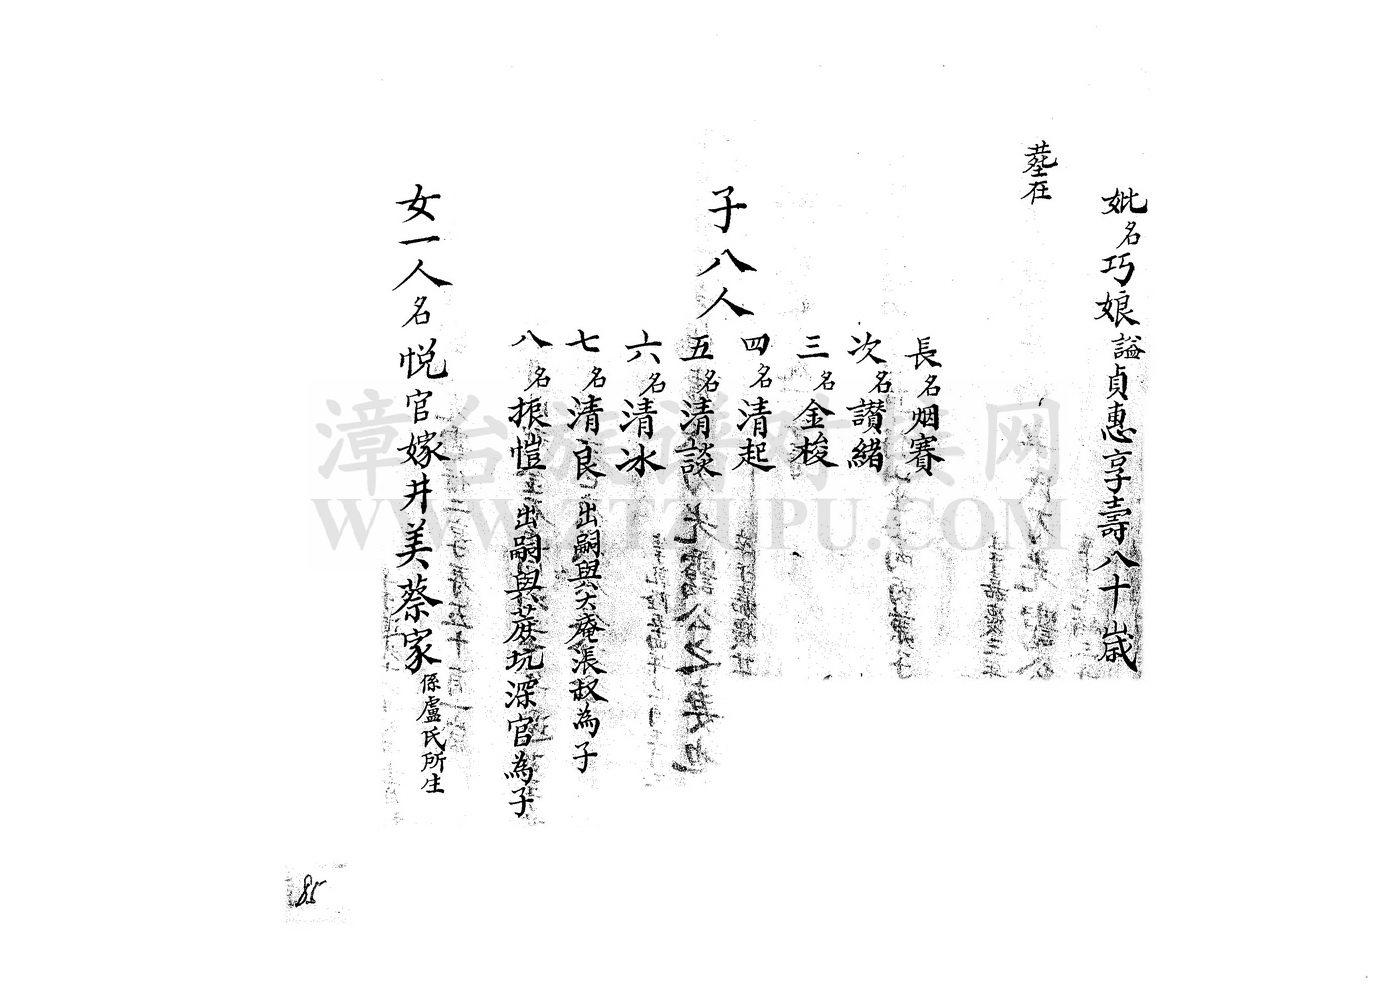 妣名巧娘謚貞惠享壽八十歲
墓在
子八人
長名烟賽
次名讃緒
三名金梭
四名清起
五名清談
六名清冰
七名清良出嗣與大庵漲叔為子
八名振愷出嗣與蔗坑深官為子
女一人名悦官嫁井美蔡家係盧氏所生
85
漳台族谱对接网
WWW.ZTZUPU.COM